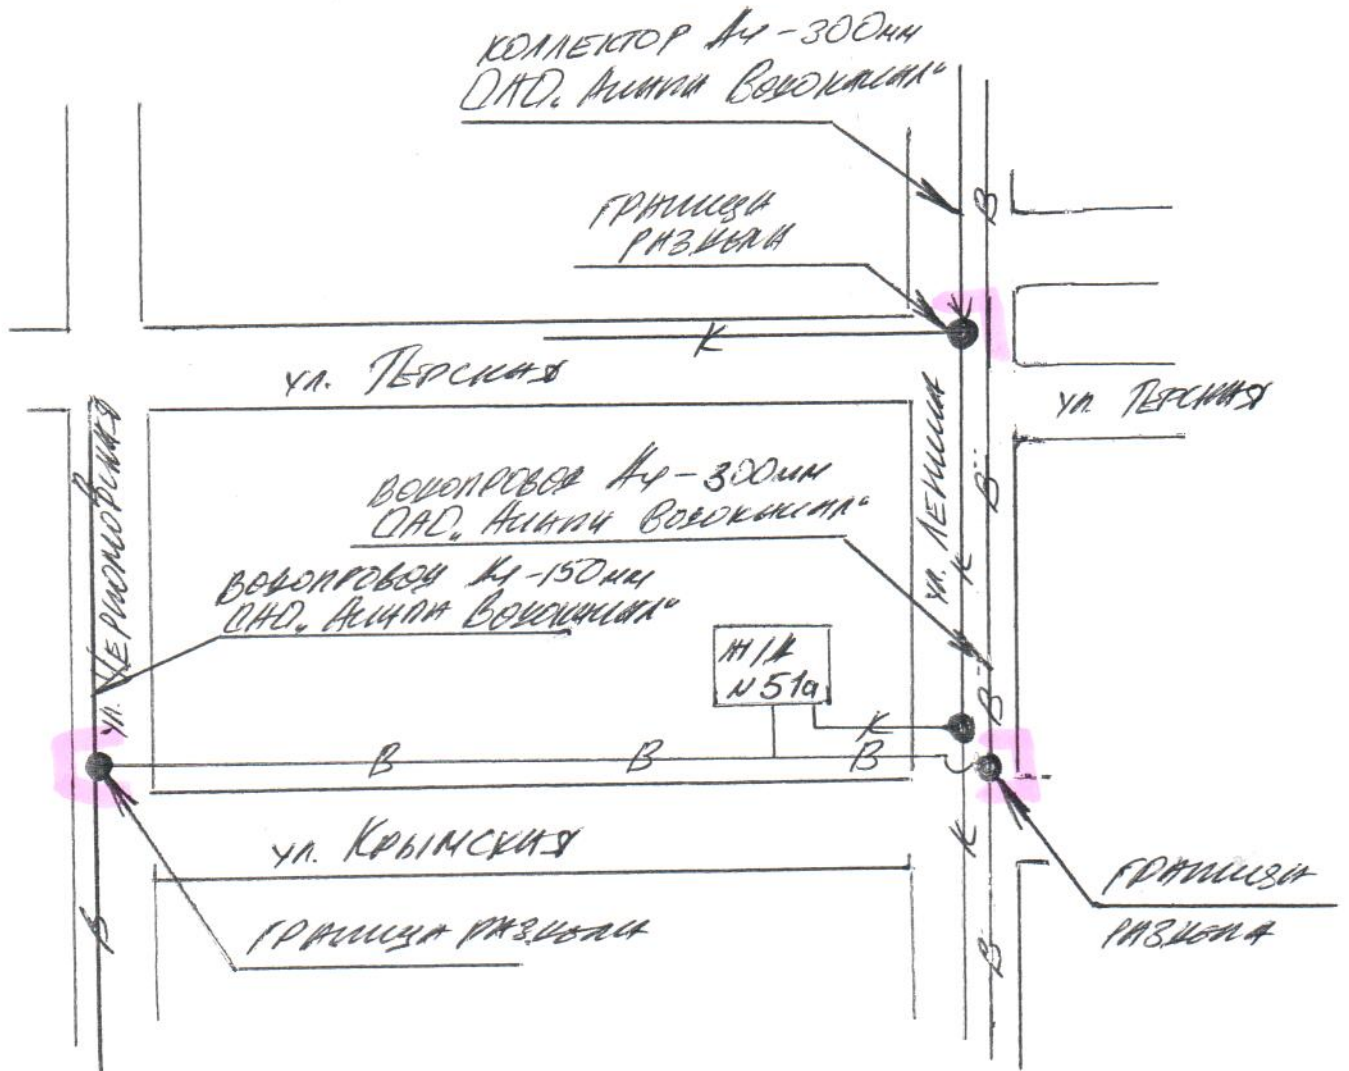 КОЛЛЕКТОР Ду-300мм
ОАО „Анапа Водоканал"
ГРАНИЦА
РАЗДЕЛА
К
В
ул. ТЕРСКАЯ
ул. ТЕРСКАЯ
ул. ЧЕРНОМОРСКАЯ
ул. ЛЕНИНА
ВОДОПРОВОД Ду-300мм
ОАО „Анапа Водоканал"
В
К
ВОДОПРОВОД Ду-150мм
ОАО „Анапа Водоканал"
Ж/Д
N 51а
К
В
В
В
В
ул. КРЫМСКАЯ
К
ГРАНИЦА
РАЗДЕЛА
ГРАНИЦА РАЗДЕЛА
В
В